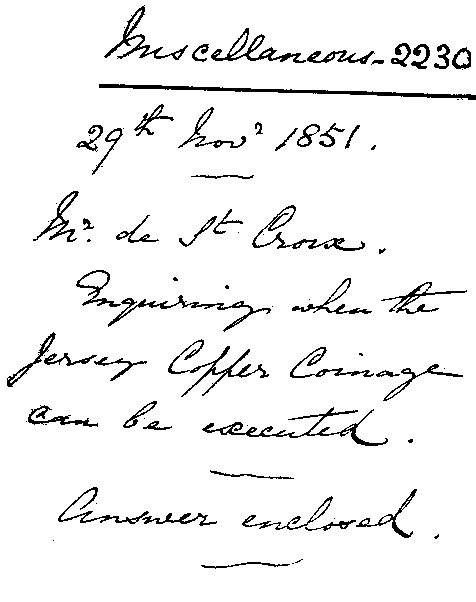 Miscellaneous - 2230
29th Novr 1851.
Mr. de St Croix.
Enquiring when the
Jersey Copper Coinage
can be executed.
Answer enclosed.